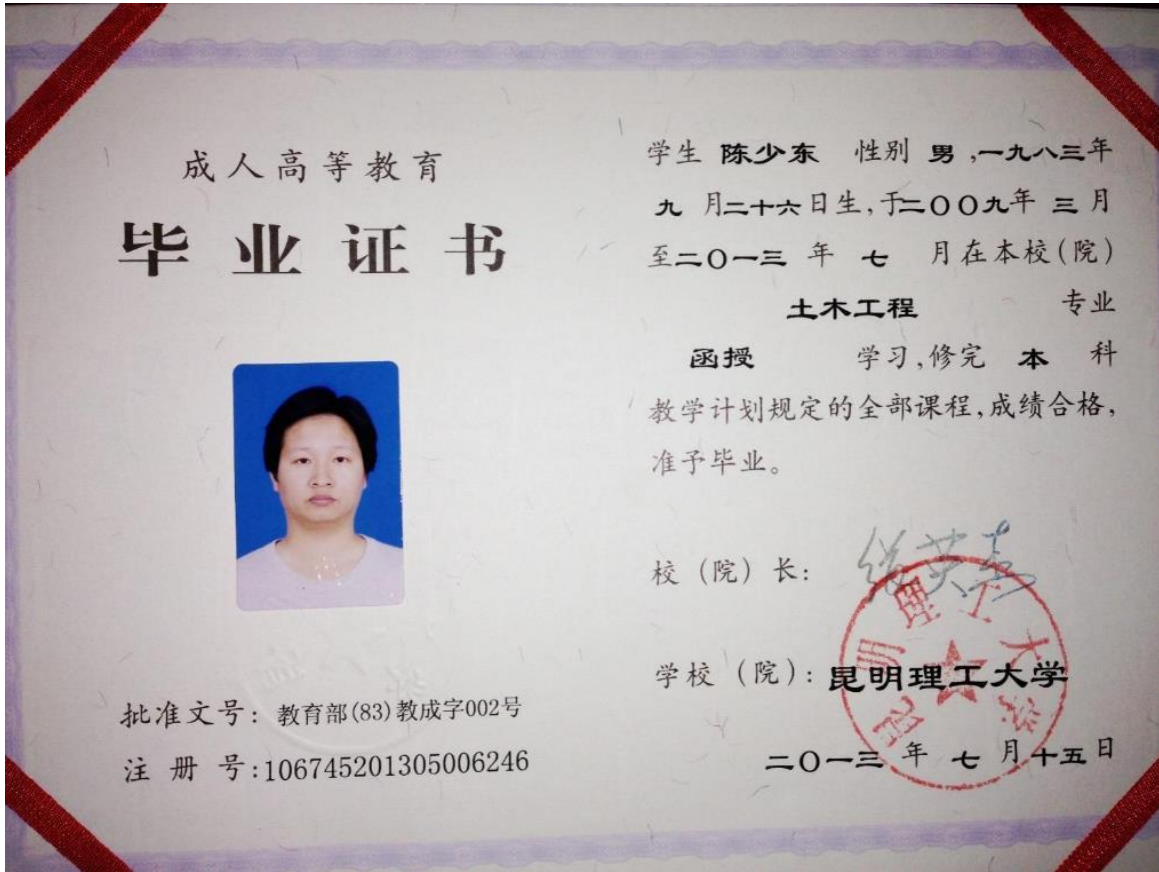 成人高等教育
毕业证书
批准文号：教育部(83)教成字002号
注册号:106745201305006246
学生 陈少东 性别 男,一九八三年
九月二十六日生,于二〇〇九年三月
至二〇一三年七月在本校(院)
土木工程 专业
函授 学习,修完 本 科
教学计划规定的全部课程,成绩合格,
准予毕业。
校（院）长：
学校（院）：昆明理工大学
二〇一三年七月十五日
昆明理工大学